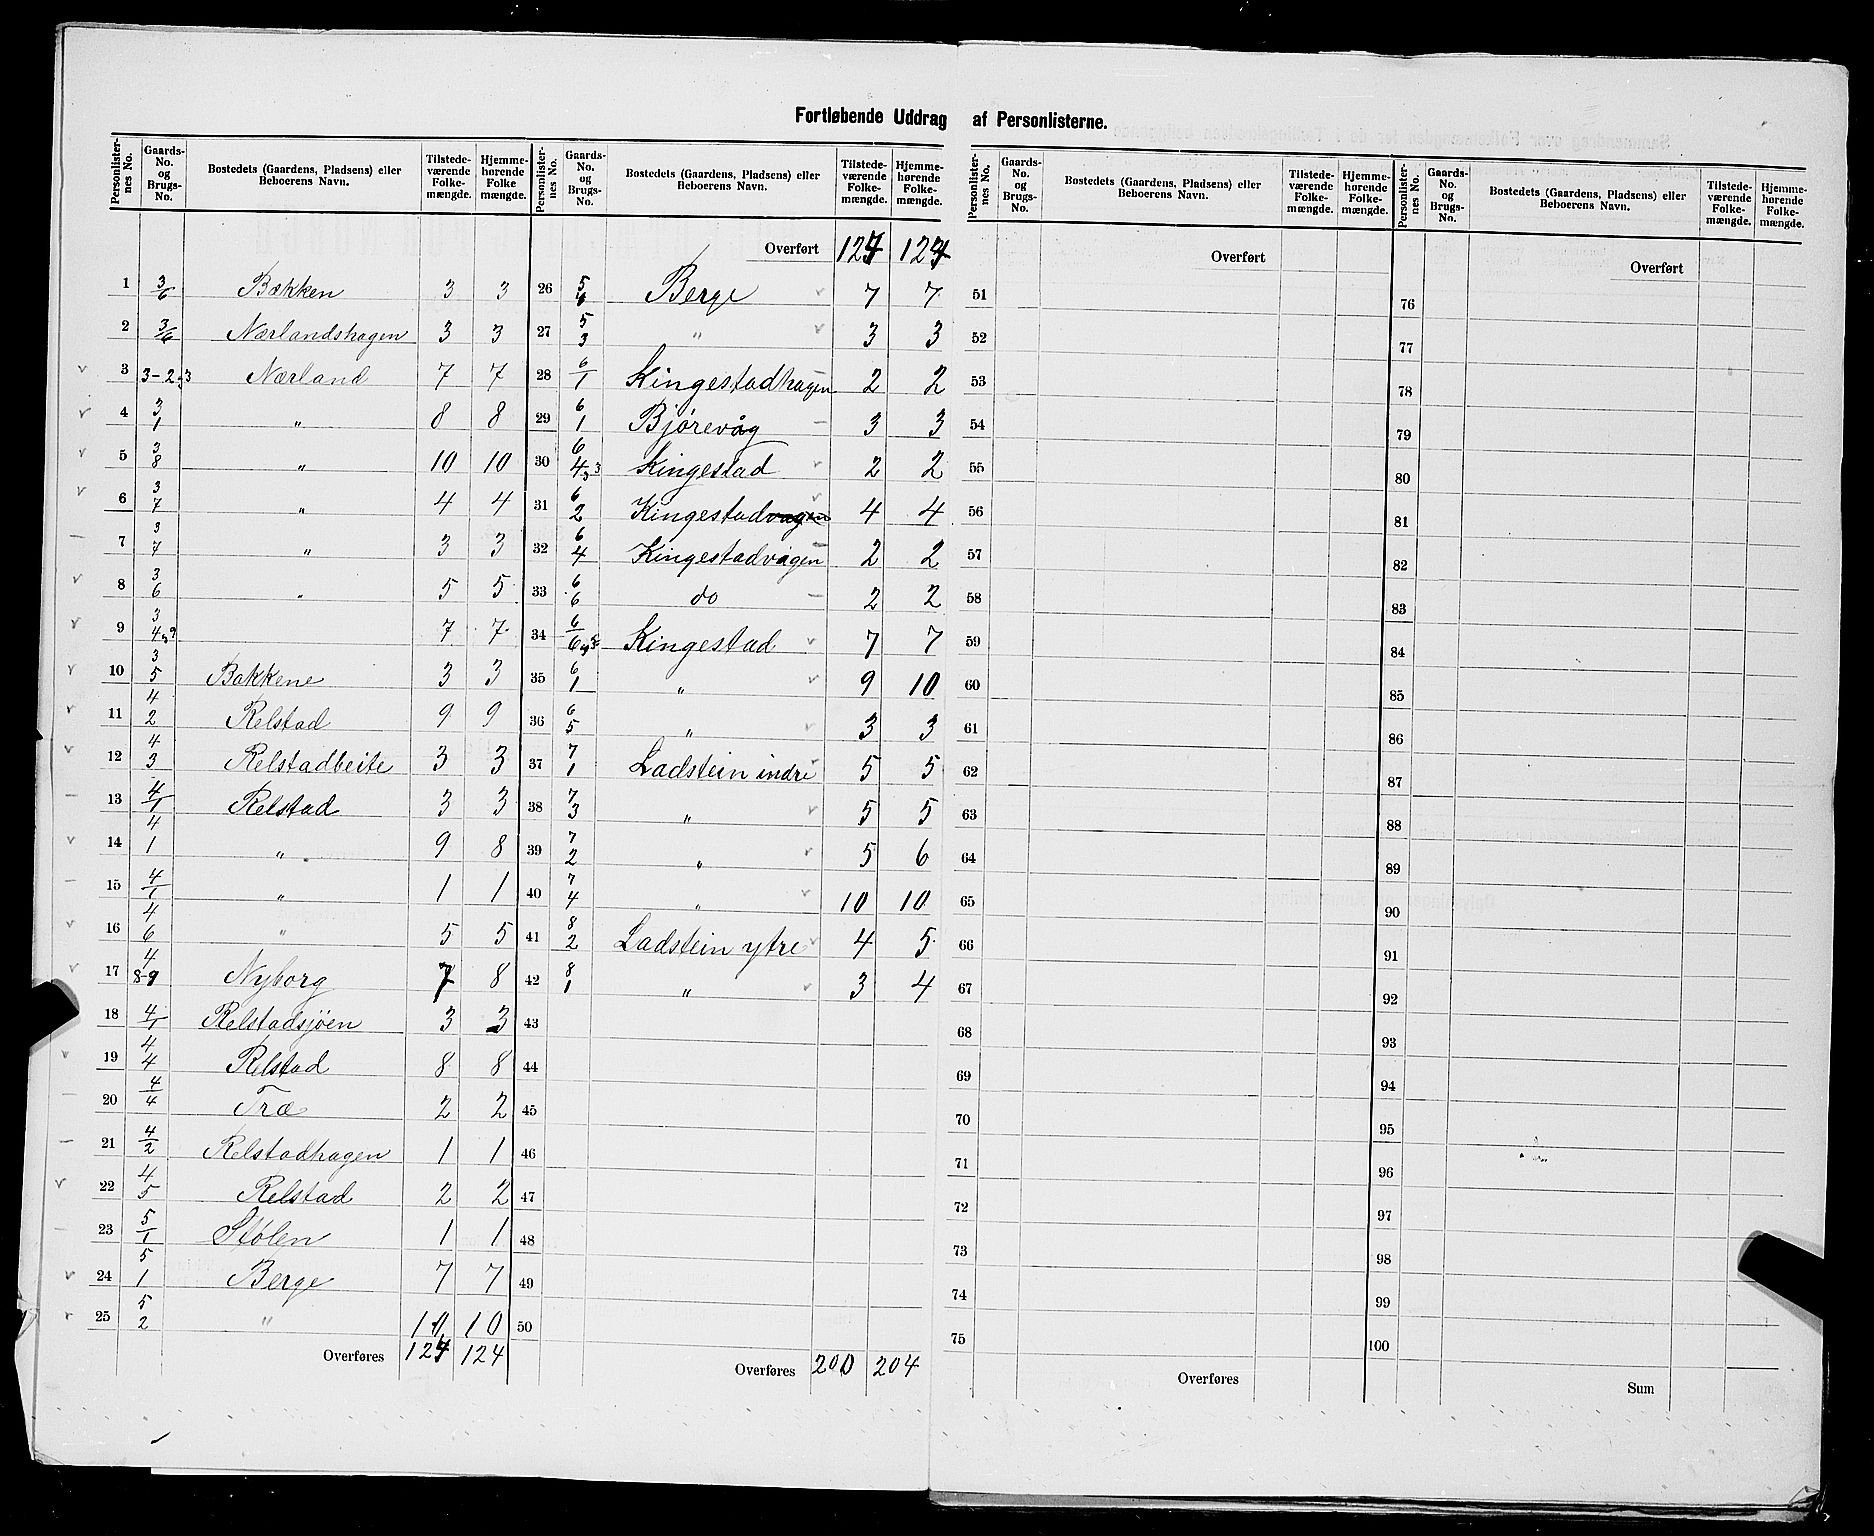 Fortløbende Uddrag af Personlisterne.
Personlister-nes No. | Gaards-No. og Brugs-No. | Bostedets (Gaardens, Pladsens) eller Beboerens Navn. | Tilstede-værende Folke-mængde. | Hjemme-hørende Folke mængde.
1 3/6 Bækken 3 3
2 3/6 Nærlandshagen 3 3
3 3-2,3 Nærland 7 7
4 3/1 " 8 8
5 3/8 " 10 10
6 3/7 " 4 4
7 3/7 " 3 3
8 3/6 " 5 5
9 3/4,9 7 7
10 3/5 Bakkene 3 3
11 4/2 Relstad 9 9
12 4/3 Relstadbeite 3 3
13 4/1 Relstad 3 3
14 4/1 " 9 8
15 4/1 " 1 1
16 4/6 " 5 5
17 4/8-9 Nyborg 7 8
18 4/1 Relstadsjøen 3 3
19 4/4 Relstad 8 8
20 4/4 Træ 2 2
21 4/2 Relstadhagen 1 1
22 4/5 Relstad 2 2
23 5/1 Stølen 1 1
24 5/1 Berge 7 7
25 5/2 " 10 10
Overføres 124 124
Personlister-nes No. | Gaards-No. og Brugs-No. | Bostedets (Gaardens, Pladsens) eller Beboerens Navn. | Tilstede-værende Folke-mængde. | Hjemme-hørende Folke-mængde.
Overført 124 124
26 5/4 Berge 7 7
27 5/3 " 3 3
28 6/1 Kingestadhagen 2 2
29 6/1 Bjørevåg 3 3
30 6/4,3 Kingestad 2 2
31 6/2 Kingestadvagen 4 4
32 6/4 Kingestadvågen 2 2
33 6/6 do 2 2
34 6/6,3 Kingestad 7 7
35 6/1 " 9 10
36 6/5 " 3 3
37 7/1 Ladstein indre 5 5
38 7/3 " 5 5
39 7/2 " 5 6
40 7/4 " 10 10
41 8/2 Ladstein ytre 4 5
42 8/1 " 3 4
43
44
45
46
47
48
49
50
Overføres 200 204
Personlister-nes No. | Gaards-No. og Brugs-No. | Bostedets (Gaardens, Pladsens) eller Beboerens Navn. | Tilstede-værende Folke-mængde. | Hjemme-hørende Folke-mængde.
Overført
51
52
53
54
55
56
57
58
59
60
61
62
63
64
65
66
67
68
69
70
71
72
73
74
75
Overføres
Personlister-nes No. | Gaards-No. og Brugs-No. | Bostedets (Gaardens, Pladsens) eller Beboerens Navn. | Tilstede-værende Folke-mængde. | Hjemme-hørende Folke-mængde.
Overført
76
77
78
79
80
81
82
83
84
85
86
87
88
89
90
91
92
93
94
95
96
97
98
99
100
Sum